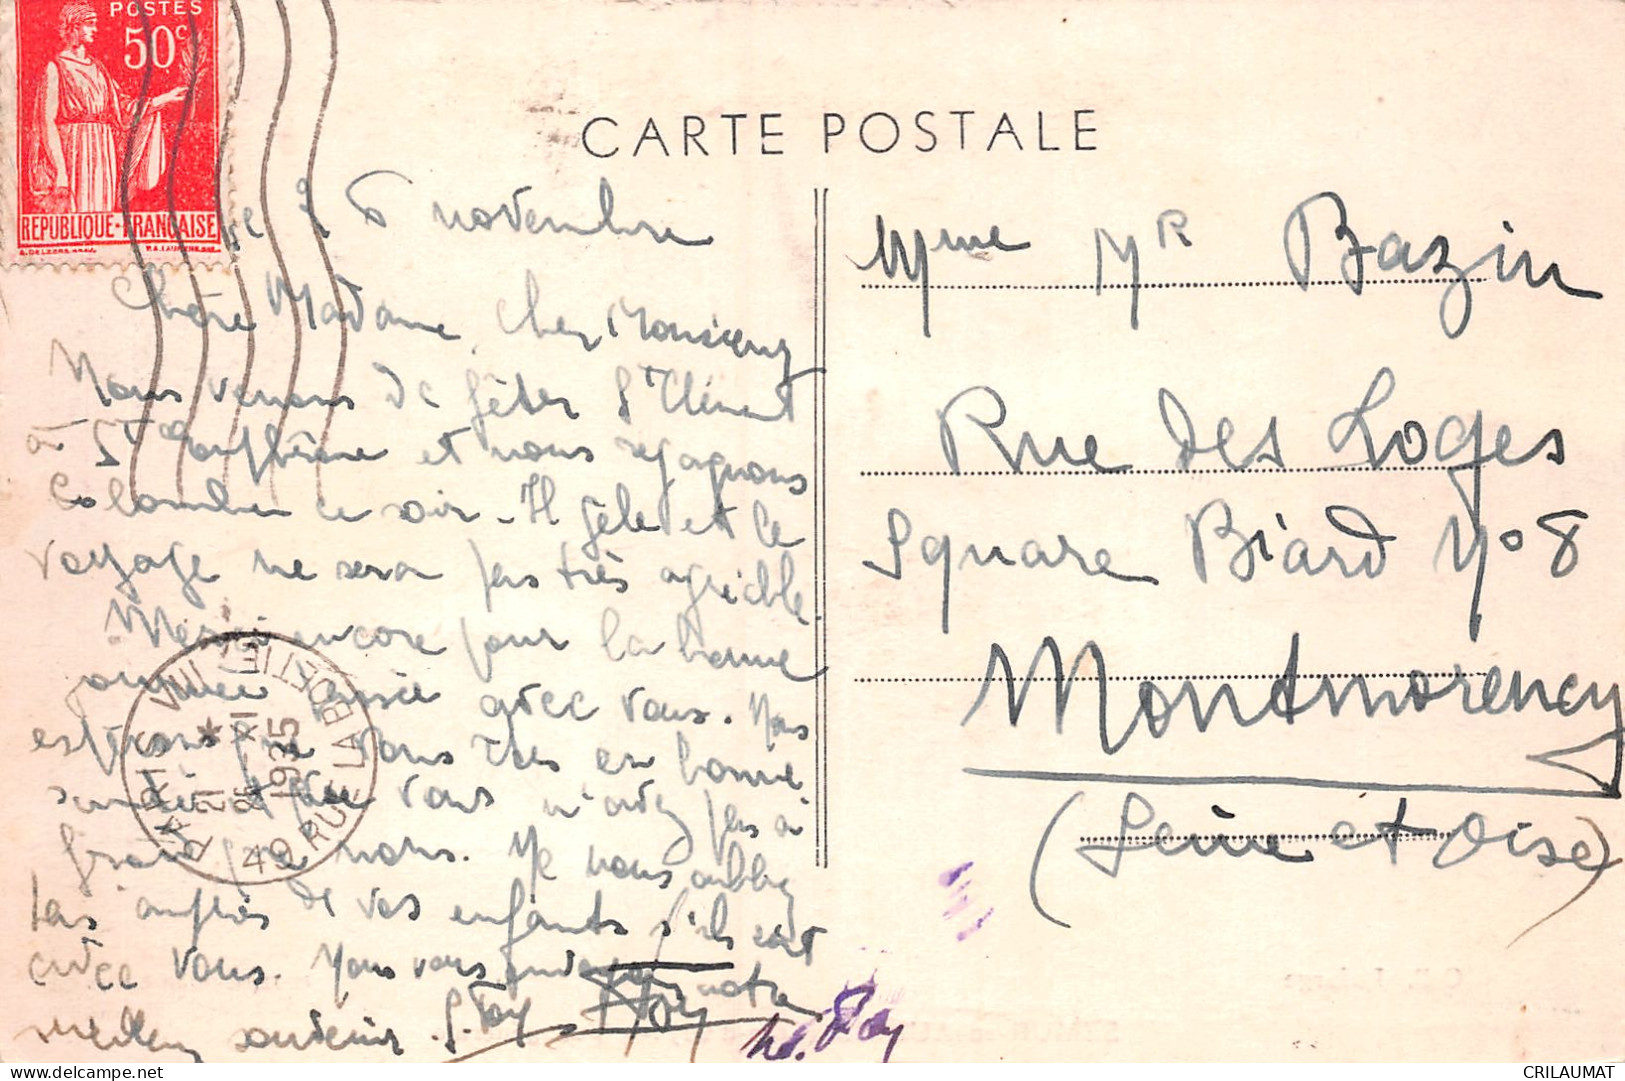 POSTES
50c
REPUBLIQUE-FRANÇAISE
CARTE POSTALE
novembre
Chère Madame, Cher Monsieur
Nous venons de fêter St Clément
à St et nous regagnons
Colombes ce soir. Il gèle et le
voyage ne sera pas très agréable.
Merci encore pour la bonne
passée avec vous. Nous
espérons que vous êtes en bonne
santé et que vous n'avez pas
froid que nous. Ne nous oubliez
pas auprès de vos enfants s'ils sont
avec vous. Nous vous notre
meilleur souvenir.
PARIS VIII
21
26 - XI
1935
49 RUE LA BOETIE
Mme Mr Bazin
Rue des Loges
Square Biard No 8
Montmorency
(Seine et Oise)
CRILAUMAT